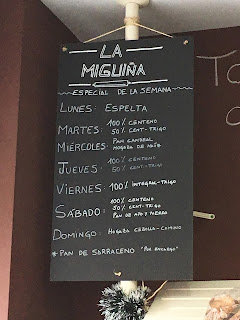 LA
MIGUIÑA
ESPECIAL DE LA SEMANA
LUNES: ESPELTA
MARTES: 100% CENTENO
50% CENT-TRIGO
MIÉRCOLES: PAN CANDEAL
HOGAZA DE MAÍZ
JUEVES: 100% CENTENO
50% CENT-TRIGO
VIERNES: 100% INTEGRAL-TRIGO
SÁBADO: 100% CENTENO
50% CENT-TRIGO
PAN DE AJO Y
DOMINGO: HOGAZA CEBOLLA-COMINO
* PAN DE SARRACENO "POR ENCARGO"
TO